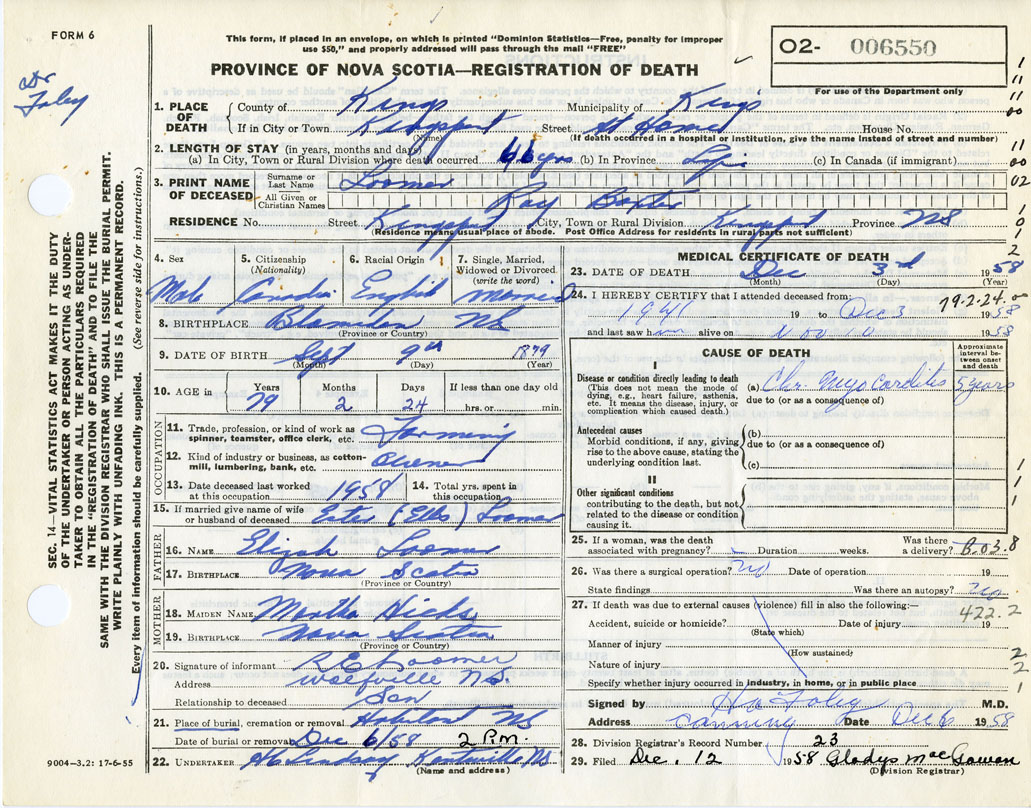 FORM 6
This form, if placed in an envelope, on which is printed "Dominion Statistics—Free, penalty for improper
use $50," and properly addressed will pass through the mail "FREE"
O2- 006550
PROVINCE OF NOVA SCOTIA—REGISTRATION OF DEATH
For use of the Department only
Dr
Foley
1. PLACE OF DEATH { County of Kings Municipality of Kings
If in City or Town Kingsport Street At Home House No.
(Name) (If death occurred in a hospital or institution, give the name instead of street and number)
2. LENGTH OF STAY (in years, months and days)
(a) In City, Town or Rural Division where death occurred 66 yrs (b) In Province Life (c) In Canada (if immigrant)
3. PRINT NAME OF DECEASED Surname or Last Name Loomer
All Given or Christian Names Ray Baxter
RESIDENCE No. Street Kingsport City, Town or Rural Division Kingsport Province NS
(Residence means usual place of abode. Post Office Address for residents in rural parts not sufficient)
4. Sex 5. Citizenship (Nationality) 6. Racial Origin 7. Single, Married, Widowed or Divorced. (write the word)
Male Canadian English Married
8. BIRTHPLACE NS
(Province or Country)
9. DATE OF BIRTH Sept 9th 1879
(Month) (Day) (Year)
10. AGE in Years Months Days If less than one day old
79 2 24 hrs. or min.
OCCUPATION
11. Trade, profession, or kind of work as spinner, teamster, office clerk, etc. Farming
12. Kind of industry or business, as cotton-mill, lumbering, bank, etc.
13. Date deceased last worked at this occupation 1958 14. Total yrs. spent in this occupation
15. If married give name of wife or husband of deceased Loomer
FATHER
16. NAME Elijah Loomer
17. BIRTHPLACE Nova Scotia
(Province or Country)
MOTHER
18. MAIDEN NAME Martha Hicks
19. BIRTHPLACE Nova Scotia
(Province or Country)
20. Signature of informant R E Loomer
Address Wolfville N.S.
Relationship to deceased Son
21. Place of burial, cremation or removal NS
Date of burial or removal Dec 6/58 2 P.m.
22. UNDERTAKER Lindsay Kentville NS
(Name and address)
MEDICAL CERTIFICATE OF DEATH
23. DATE OF DEATH Dec 3rd 1958
(Month) (Day) (Year)
24. I HEREBY CERTIFY that I attended deceased from: 79-2-24.
1941 19 to Dec 3 1958
and last saw him alive on Nov 10 1958
CAUSE OF DEATH
Approximate interval between onset and death
I
Disease or condition directly leading to death (a) Chr. Myocarditis 5 years
(This does not mean the mode of dying, e.g., heart failure, asthenia, etc. It means the disease, injury, or complication which caused death.)
due to (or as a consequence of)
Antecedent causes
Morbid conditions, if any, giving rise to the above cause, stating the underlying condition last.
(b)
due to (or as a consequence of)
(c)
II
Other significant conditions
contributing to the death, but not related to the disease or condition causing it.
25. If a woman, was the death associated with pregnancy? Duration weeks. Was there a delivery? B.03.8
26. Was there a surgical operation? no Date of operation 19
State findings Was there an autopsy? no
27. If death was due to external causes (violence) fill in also the following:— 422.2
Accident, suicide or homicide? Date of injury 19
(State which)
Manner of injury
(How sustained)
Nature of injury
Specify whether injury occurred in industry, in home, or in public place
Signed by Foley M.D.
Address Canning Date Dec 6 1958
28. Division Registrar's Record Number 23
29. Filed Dec. 12 1958 Gladys MacGowan
(Division Registrar)
SEC. 14—VITAL STATISTICS ACT MAKES IT THE DUTY
OF THE UNDERTAKER OR PERSON ACTING AS UNDER-
TAKER TO OBTAIN ALL THE PARTICULARS REQUIRED
IN THE "REGISTRATION OF DEATH" AND TO FILE THE
SAME WITH THE DIVISION REGISTRAR WHO SHALL ISSUE THE BURIAL PERMIT.
WRITE PLAINLY WITH UNFADING INK. THIS IS A PERMANENT RECORD.
Every item of information should be carefully supplied. (See reverse side for instructions.)
9004—3.2: 17-6-55
1
11
11
00
11
00
02
1
6
1
2
1
1
1
2
2
1